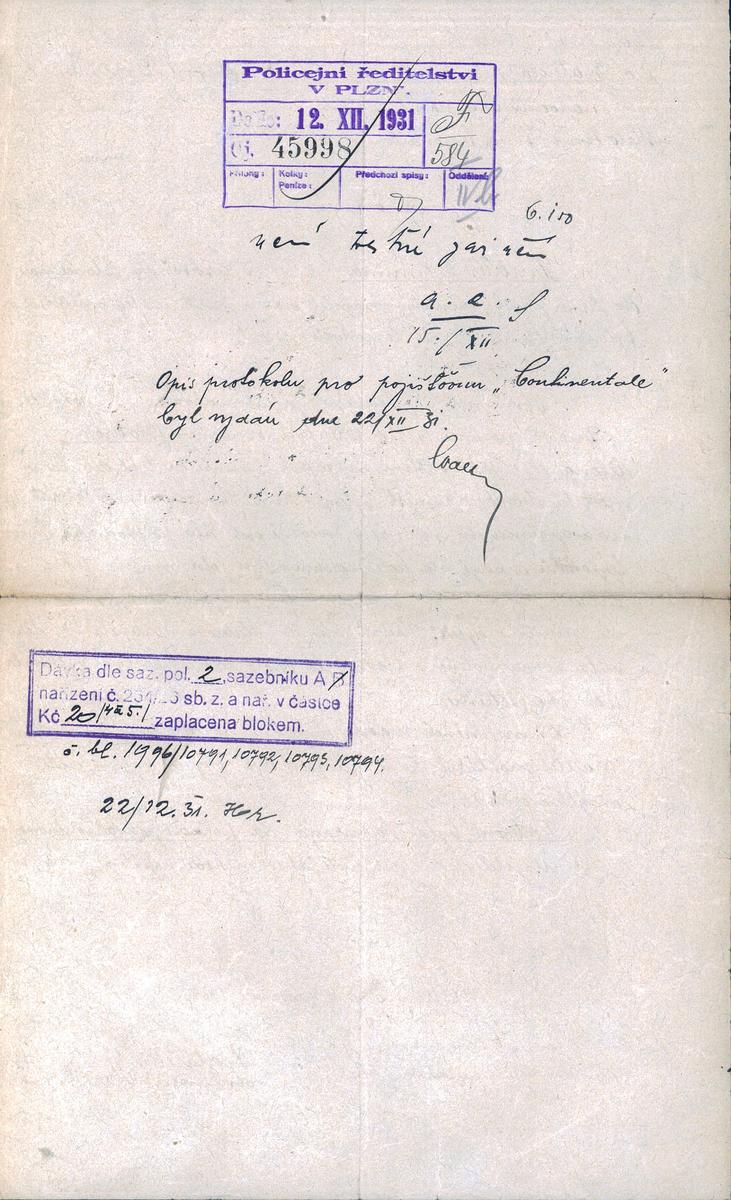 Policejní ředitelství
V PLZNI.
Došlo: 12. XII. 1931
Čj. 45998
584
Přílohy: Kolky: Peníze: Předchozí spisy: Oddělení:
IVb
není
a. a. S
15./XII
Opis protokolu pro pojišťovnu „Continentale"
byl vydán dne 22/XII 31.
Dávka dle saz. pol. 2, sazebníku A
nařízení č. sb. z. a nař. v částce
Kč 20 (4 à 5.) zaplacena blokem.
č. bl. 1996/10791, 10792, 10793, 10794.
22/12. 31.